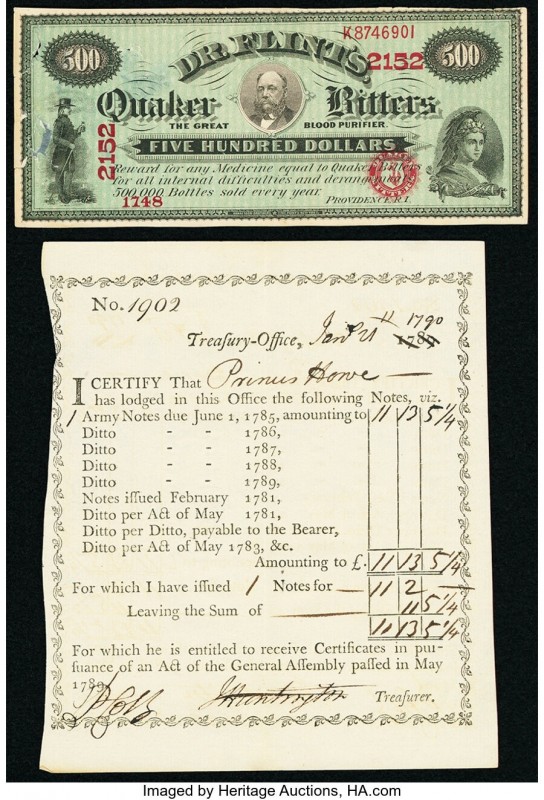 500
DR. FLINT'S
K8746901
2152
500
Quaker Bitters
THE GREAT BLOOD PURIFIER.
2152
FIVE HUNDRED DOLLARS
Reward for any Medicine equal to Quaker Bitters
for all internal difficulties and derangements
500,000 Bottles sold every year.
1748
PROVIDENCE. R.I.
No. 1902
Treasury-Office, Jany 21st 1789 1790
I CERTIFY That Primus Howe
has lodged in this Office the following Notes, viz.
1 Army Notes due June 1, 1785, amounting to 11 13 5 1/4
Ditto - - 1786,
Ditto - - 1787,
Ditto - - 1788,
Ditto - - 1789,
Notes issued February 1781,
Ditto per Act of May 1781,
Ditto per Ditto, payable to the Bearer,
Ditto per Act of May 1783, &c.
Amounting to £. 11 13 5 1/4
For which I have issued 1 Notes for — 11 2 —
Leaving the Sum of — 11 5 1/4
11 13 5 1/4
For which he is entitled to receive Certificates in pur-
ſuance of an Act of the General Aſſembly paſſed in May
1789.
J Huntington Treaſurer.
Imaged by Heritage Auctions, HA.com